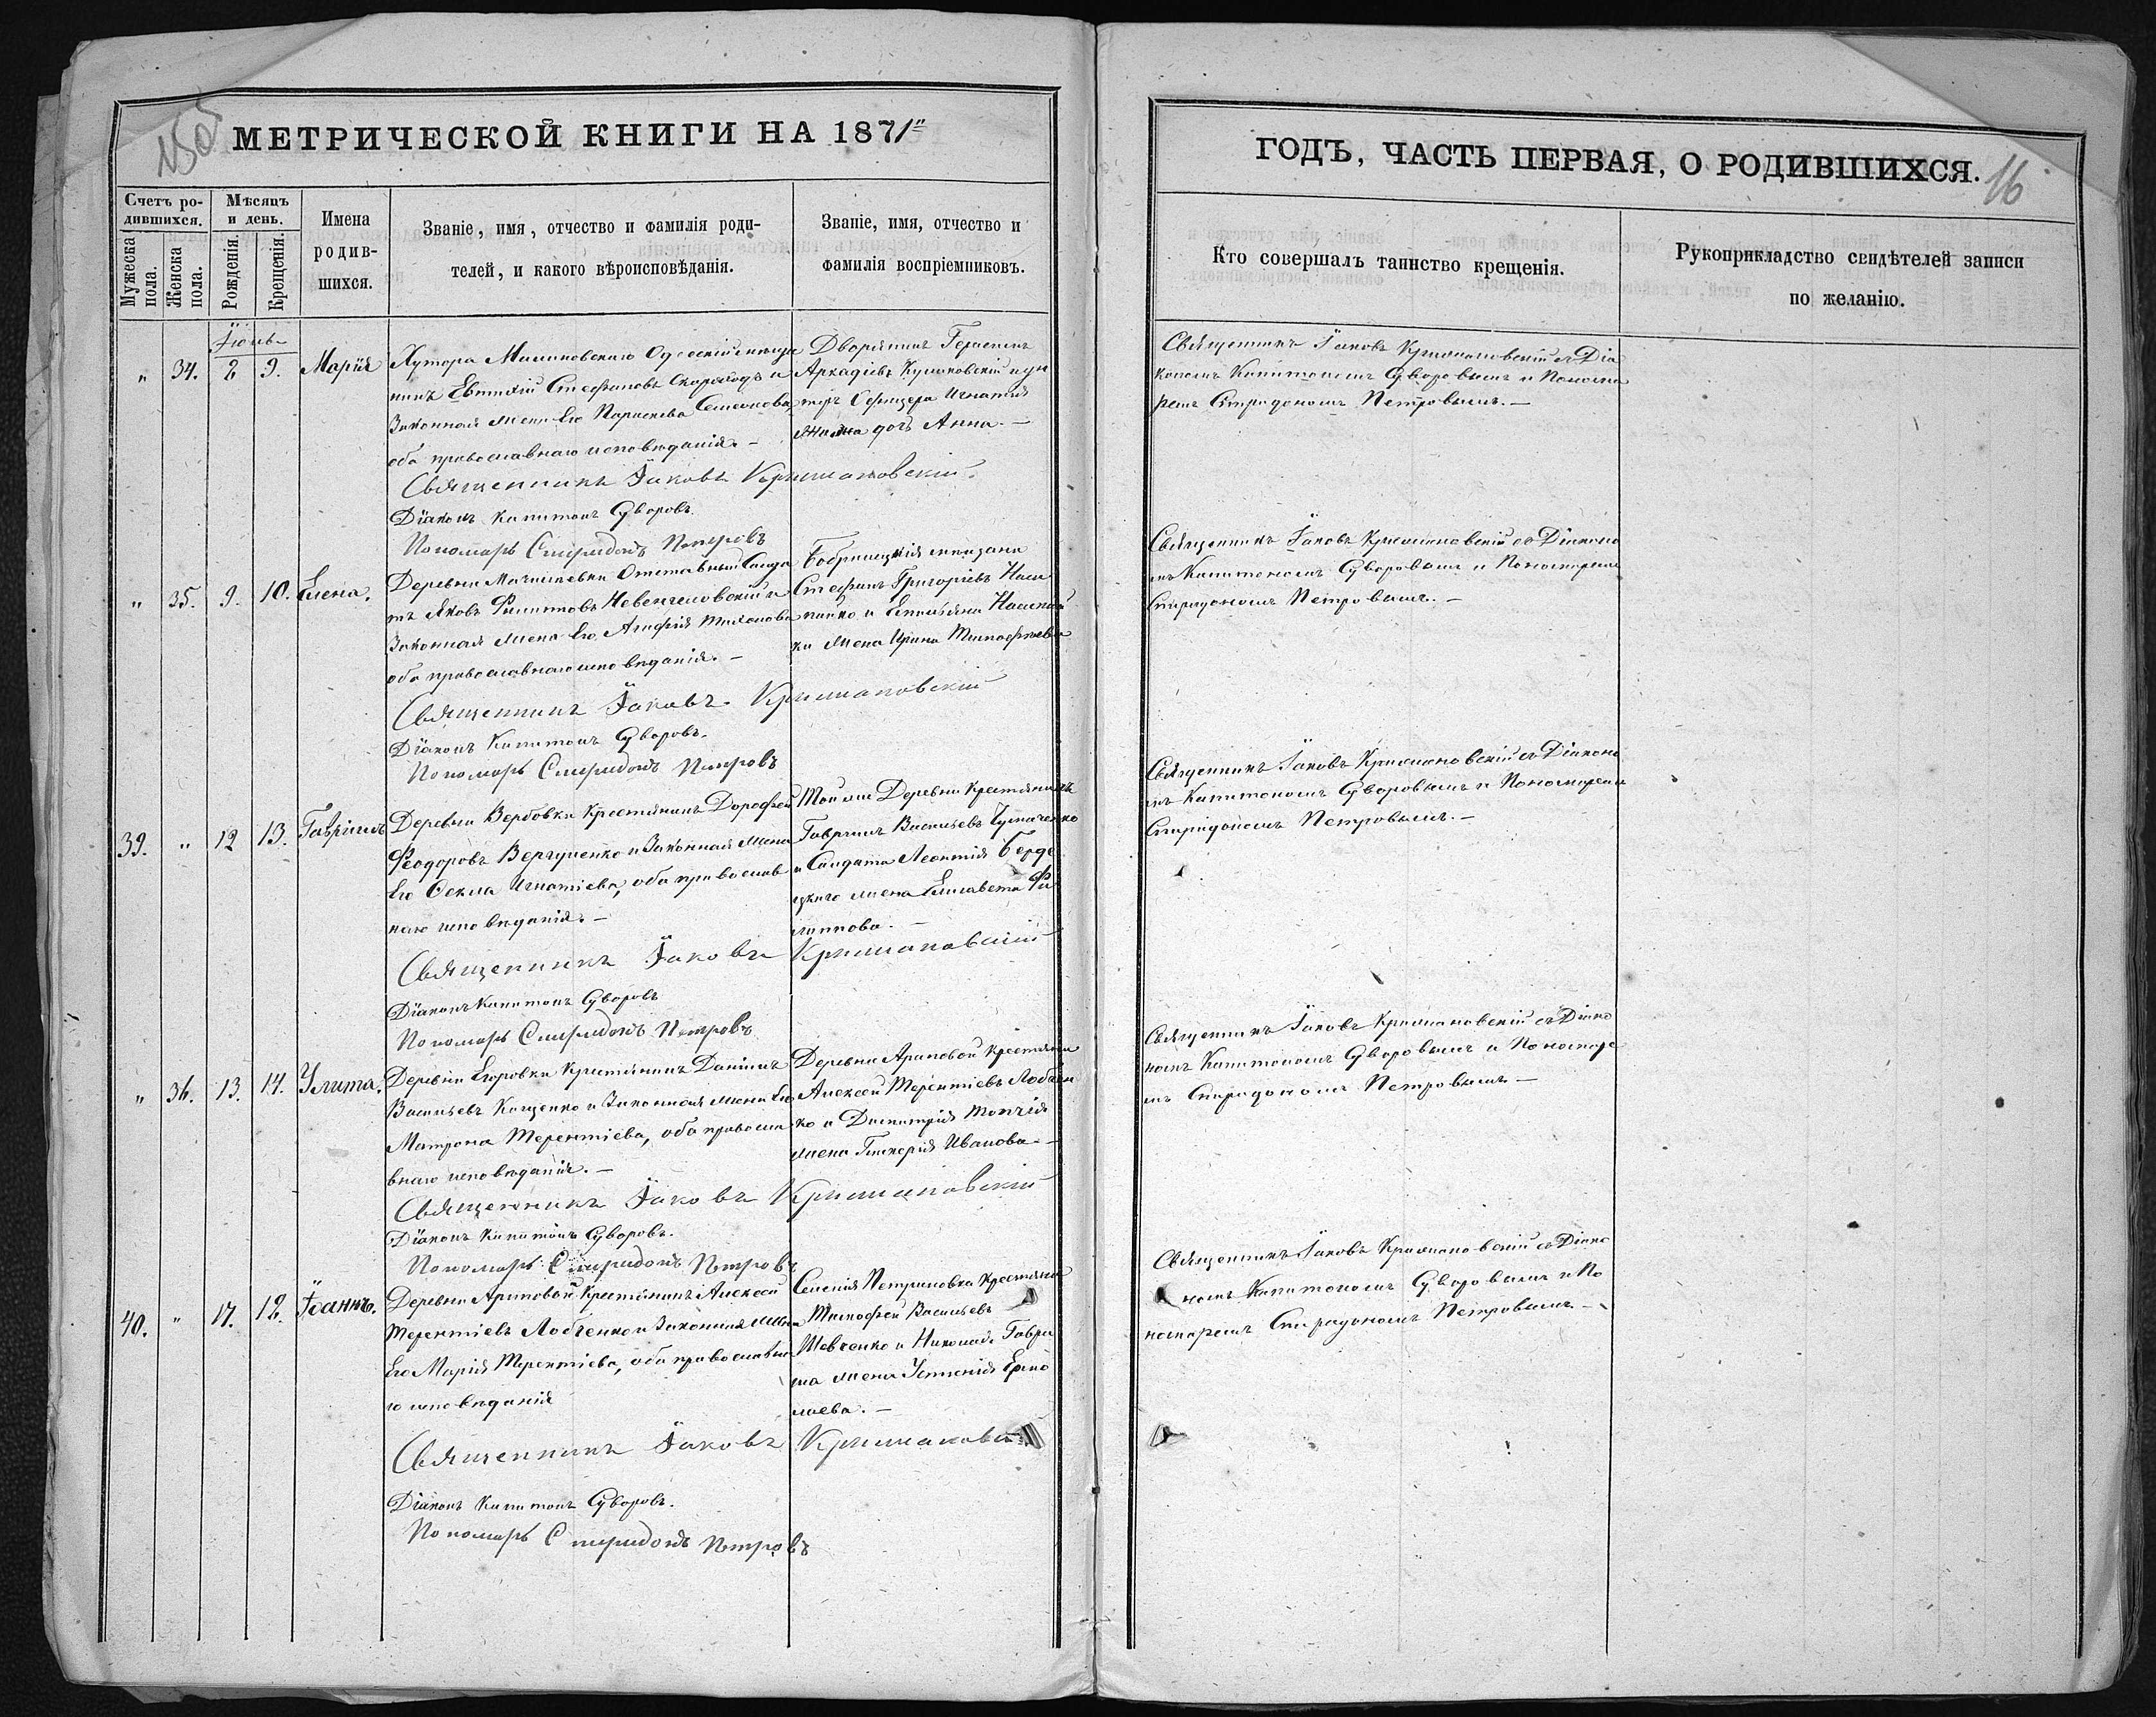 МЕТРИЧЕСКОЙ КНИГИ НА 1871
Счетъ ро-
дившихся.
Мужеска пола.
Женска пола.
Мѣсяцъ
и день.
Рожденія.
Крещенія.
Имена
родив-
шихся.
Званіе, имя, отчество и фамилія роди-
телей, и какого вѣроисповѣданія.
Званіе, имя, отчество и
фамилія воспріемниковъ.
Іюнь
" 34. 2 9. Марія
Хутора Одесскій мѣща
нинъ Евтихій Стефановъ Скороходъ и
Законная жена Его Параскева Семенова,
оба православнаго исповѣданія. –
Дворянинъ Герасимъ
Аркадіевъ
Офицера Игнатія
дочь Анна. –
Священникъ Іаковъ Крыжановскій.
Діаконъ Капитонъ Суворовъ.
Пономарь Спиридонъ Петровъ
" 35. 9. 10. Елена.
Деревни Отставный Салда
тъ Яковъ Филиповъ и
Законная жена Его Агафія
оба православнаго исповѣданія. –
Бобринецкій мѣщани
Стефанъ Григоріевъ
и Емельяна
ки жена Ирина Тимофѣева
Священникъ Іаковъ Крыжановскій
Діаконъ Капитонъ Суворовъ.
Пономарь Спиридонъ Петровъ
39. " 12 13. Гавріилъ
Деревни Вербовки Крестьянинъ Дорофей
Феодоровъ и Законная жена
Его Ѳекла Игнатіева, оба православ
наго исповѣданія. –
Той же Деревни Крестьянинъ
Гавріилъ Васильевъ
и Салдата Леонтія
жена Елисавета Фи
липпова. –
Священникъ Іаковъ Крыжановскій
Діаконъ Капитонъ Суворовъ
Пономарь Спиридонъ Петровъ
" 36. 13. 14. Улита.
Деревни Егоровки Крестьянинъ Даніилъ
Васильевъ Кащенко и Законная жена Его
Матрона Терентіева, оба правосла
внаго исповѣданія. –
Деревни Ариповой Крестьяни
Алексей Терентіевъ Лобчен
ко и Димитрія
жена Гликерія Иванова –
Священникъ Іаковъ Крыжановскій
Діаконъ Капитонъ Суворовъ.
Пономарь Спиридонъ Петровъ
40. " 17. Іоаннъ.
Деревни Ариповой Крестьянинъ Алексей
Терентіевъ Лобченко и Законная жена
Его Марія Терентіева, оба православна
го исповѣданія
Селенія Петриковка Крестьяни
Тимофей Васильевъ
Шевченко и Николая Гаври
ша жена Устинія Ермо
лаева. –
Священникъ Іаковъ
Діаконъ Капитонъ Суворовъ.
Пономарь Спиридонъ Петровъ
ГОДЪ, ЧАСТЬ ПЕРВАЯ, О РОДИВШИХСЯ.
16
Кто совершалъ таинство крещенія.
Рукоприкладство свидѣтелей записи
по желанію.
Священникъ Іаковъ Крыжановскій съ Діа
кономъ Капитономъ Суворовымъ и Понома
ремъ Спиридономъ Петровымъ. –
Священникъ Іаковъ Крыжановскій съ Діаконо
мъ Капитономъ Суворовымъ и Пономаремъ
Спиридономъ Петровымъ. –
Священникъ Іаковъ Крыжановскій съ Діаконо
мъ Капитономъ Суворовымъ и Пономаремъ
Спиридономъ Петровымъ. –
Священникъ Іаковъ Крыжановскій съ Діако
номъ Капитономъ Суворовымъ и Пономаре
мъ Спиридономъ Петровымъ –
Священникъ Іаковъ Крыжановскій съ Діако
номъ Капитономъ Суворовымъ и По
номаремъ Спиридономъ Петровымъ –